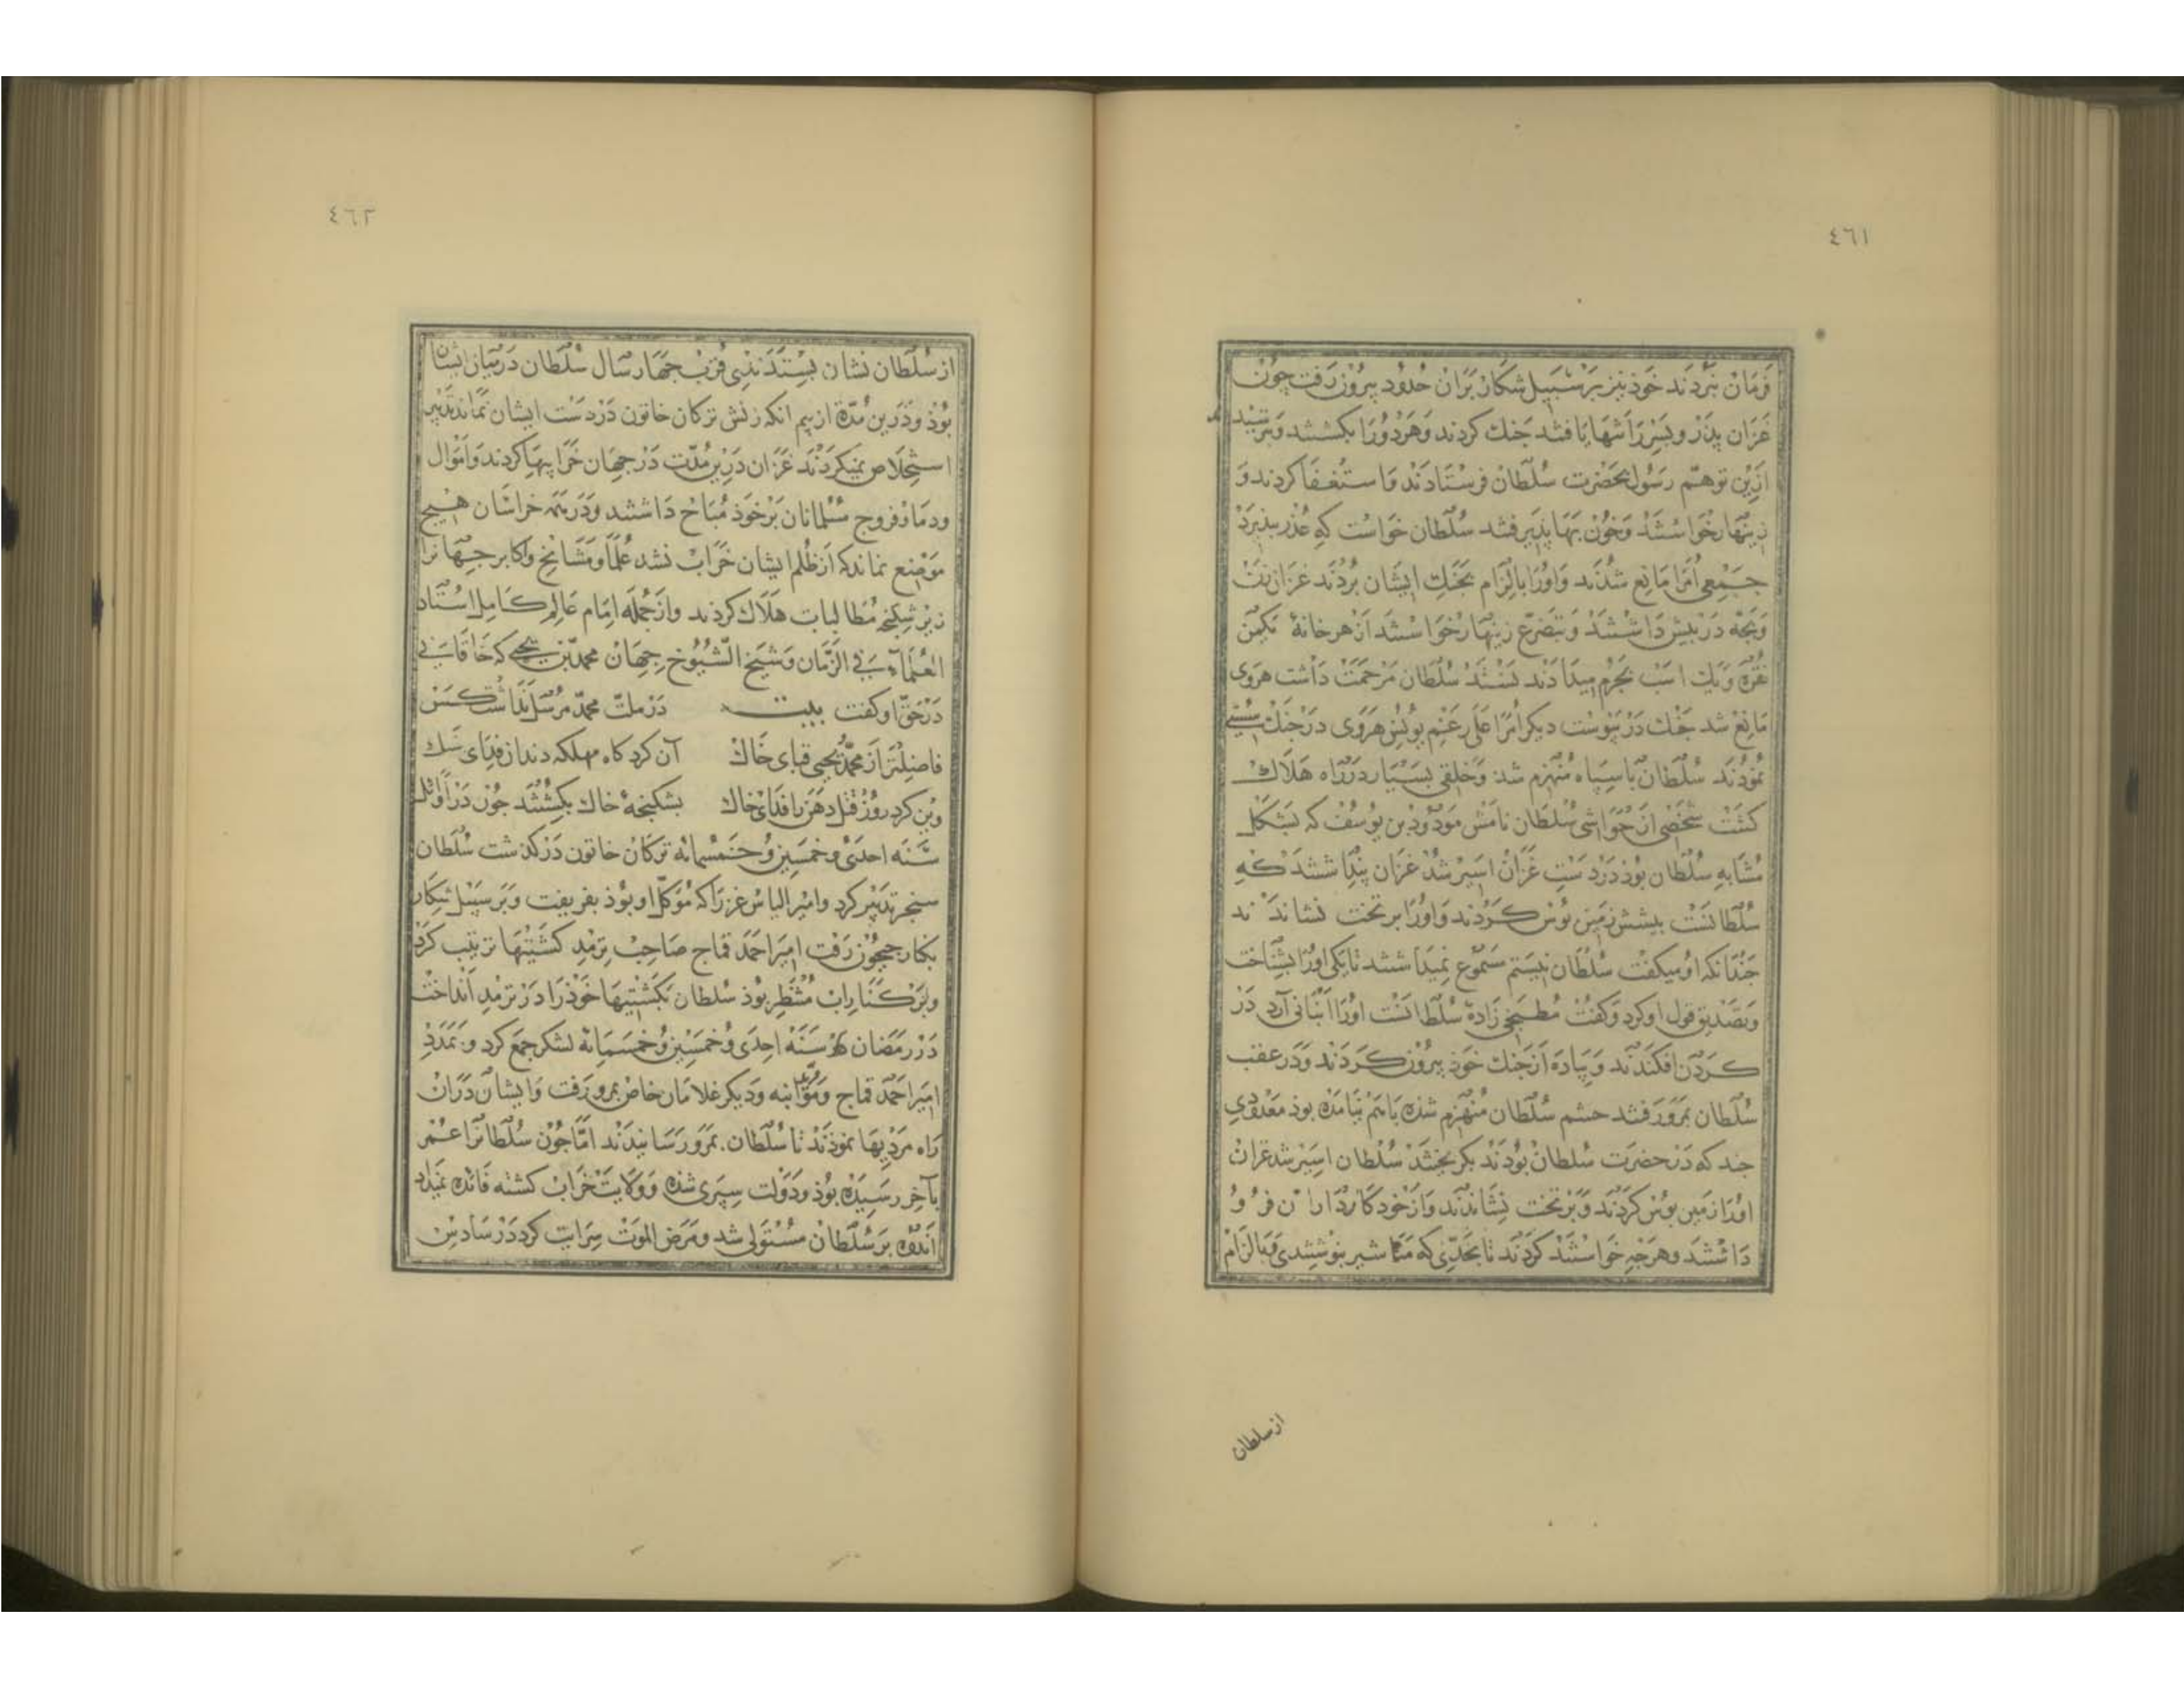 ٤٦١
فرمان نبردند خوذ نیز بر سبیل شکار بران حدود بیرون رفت چون
غزان بذر و بسر را تنها یافتند جنك کردند وهر دو را بکشتند و بترسیدند
ازین توهم رسول بحضرت سلطان فرستادند و استعفا کردند و
زینهار خواستند و خون بها بذیرفتند سلطان خواست که عذر بپذیرد
جمعی امرا مانع شدند و اورا بالزام بجنك ایشان بردند غزان زن
و بچه در بیش داشتند و بتضرع زینهار خواستند از هر خانهٔ یکمن
نقره و یك اسب بجرم میدادند نستند سلطان مرحمت داشت هروی
مانع شد جنك در پیوست دیکر امرا علی رغم یونس هروی در جنك سستی
نمودند سلطان با سپاه منهزم شد و خلقی بسیار در راه هلاك
کشت شخصی از حواشی سلطان نامش مودود بن یوسف که بشکل
مشابه سلطان بوذ در دست غزان اسیر شد غزان بنداشتند که
سلطانست بیشش زمین بوس کردند و اورا بر تخت نشاندند
جندانکه او میکفت سلطان نیستم مسموع نمیداشتند تا یکی اورا بشناخت
و تصدیق قول او کرد و کفت مطبخی زادهٔ سلطانست اورا انبانی آرد در
کردن افکندند و پیاده از جنك خوذ بیرون کردند و در عقب
سلطان بمرو رفتند حشم سلطان منهزم شده باهم نیامده بوذ معدودی
جند که در حضرت سلطان بودند بکریختند سلطان اسیر شد غزان
اورا زمین بوس کردند و بر تخت نشاندند و از خود کارداران فرو
داشتند و هرجه خواستند کردند تا بحدی که مثا شیر بنوشتندی و بالزام
از سلطان
٤٦٢
از سلطان نشان بستدندی قرب جهار سال سلطان در میان ایشان
بوذ و درین مدة از بیم انکه زنش ترکان خاتون در دست ایشان نماند تدبیر
استخلاص نمیکردند غزان درین مدت در جهان خرابیها کردند و اموال
و دما و فروج مسلمانان بر خوذ مباح داشتند و در همه خراسان هیج
موضع نماند که از ظلم ایشان خراب نشد علما و مشایخ و اکابر جهانرا
زیر شکنجه مطالبات هلاك کردند و از جمله امام عالم کامل استاد
العلماء فی الزمان و شیخ الشیوخ جهان محمد بن یحیی که خاقانی
در حق او کفت بیت در ملت محمد مرسل نداشت کس
فاضلتر از محمد یحیی قبای خاك آن کرد کاه مهلکه دندان فدای سنك
وین کرد روز قتل دهن را فدای خاك بشکنجهٔ خاك بکشتند جون در اوائل
سنه احدی و خمسین و خمسمائه ترکان خاتون در کذشت سلطان
سنجر تدبیر کرد و امیر الیاس غز را که موکل او بوذ بفریفت و بر سبیل شکار
بکنار جیحون رفت امیر احمد قماج صاحب ترمذ کشتیها ترتیب کرد
و بر کنار اب منتظر بوذ سلطان بکشتیها خوذ را در ترمذ انداخت
در رمضان سنه احدی و خمسین و خمسمائه لشکر جمع کرد و بمدد
امیر احمد قماج و مؤید ایبه و دیکر غلامان خاص بمرو رفت و ایشان دران
راه مردیها نموذند تا سلطان بمرو رسانیدند اما جون سلطانرا عمر
بآخر رسیده بوذ و دولت سپری شده و ولایت خراب کشته فائده نمیداد
اندوه بر سلطان مستولی شد و مرض الموت سرایت کرد در سادس